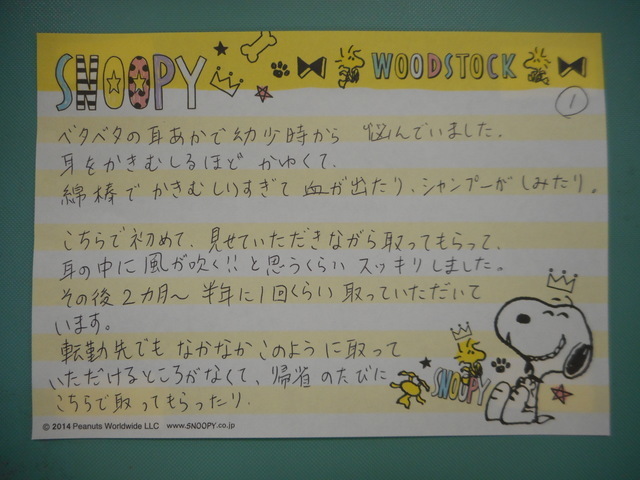 SNOOPY WOODSTOCK
1
ベタベタの耳あかで幼少時から 悩んでいました。
耳をかきむしるほど かゆくて、
綿棒で かきむしりすぎて 血が出たり、シャンプーが しみたり。
こちらで初めて、見せていただきながら取ってもらって、
耳の中に風が吹く!! と思うくらい スッキリしました。
その後2カ月〜半年に1回くらい 取っていただいて
います。
転勤先でも なかなか このように取って
いただけるところがなくて、帰省のたびに
こちらで取ってもらったり、
SNOOPY
© 2014 Peanuts Worldwide LLC www.SNOOPY.co.jp